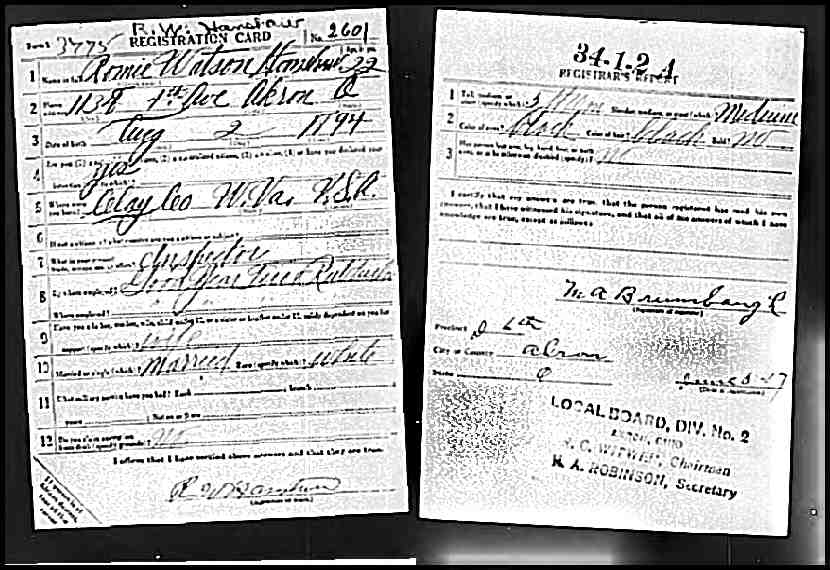 R. W. Hanshaw
Form 1 3775 REGISTRATION CARD No. 2601
1 Name in full Romie Watson Hanshaw 22
2 Home 1138 1st Ave Akron O
3 Date of birth Aug 2 1894
4 Yes
5 Where were you born? Clay Co W. Va. U.S.A.
6 If not a citizen, of what country are you a citizen or subject?
7 What is your present trade, occupation, or office? Inspector
8 By whom employed? Good Year Tire & Rubber Co
Where employed?
9 Have you a father, mother, wife, child under 12, or a sister or brother under 12, solely dependent on you for
support (specify which)? Wife
10 Married or single (which)? Married Race (specify which)? White
11 What military service have you had? Rank branch
years Nation or State
12 Do you claim exemption from draft (specify grounds)? No
I affirm that I have verified above answers and that they are true.
R W Hanshaw
34-1-2 A
REGISTRAR'S REPORT
1 Tall, medium, or short (specify which)? Slender, medium, or stout (which)? Medium
2 Color of eyes? black Color of hair? black Bald? No
3 Has person lost arm, leg, hand, foot, or both eyes, or is he otherwise disabled (specify)? No
I certify that my answers are true, that the person registered has read his own
answers, that I have witnessed his signature, and that all of his answers of which I have
knowledge are true, except as follows:
M A Brumbaugh
(Signature of registrar)
Precinct D 6th
City or County Akron
State O June 5-17
(Date of registration)
LOCAL BOARD, DIV. No. 2
AKRON, OHIO
C. WITWER, Chairman
H. A. ROBINSON, Secretary